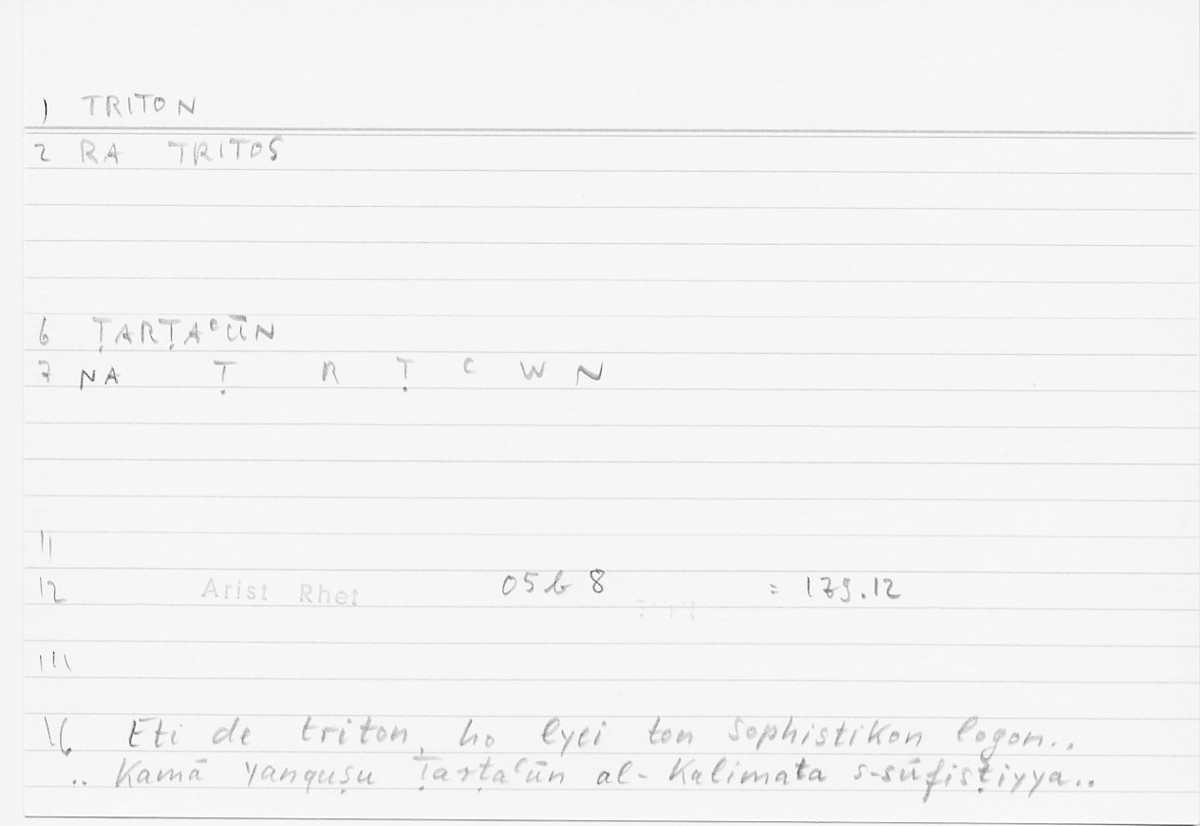 1) TRITON
2 RA TRITOS
6 ṬARṬAʿŪN
7 NA Ṭ R Ṭ ʿ W N
11
12 Arist Rhet 05b 8 = 179.12
111
16 Eti de triton, ho lyei ton sophistikon logon..
.. Kamā yanquṣu Ṭarṭaʿūn al-Kalimata s-sūfisṭiyya..